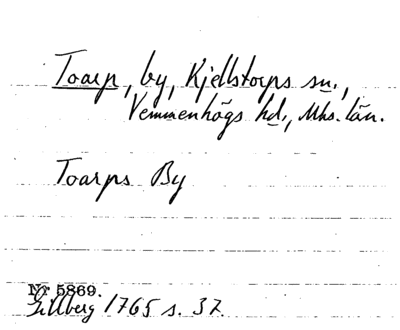 Toarp, by, Kjellstorps sn.,
Vemmenhögs hd., Mhs. län.
Toarps By
Nr 5869.
Gillberg 1765 s. 37.